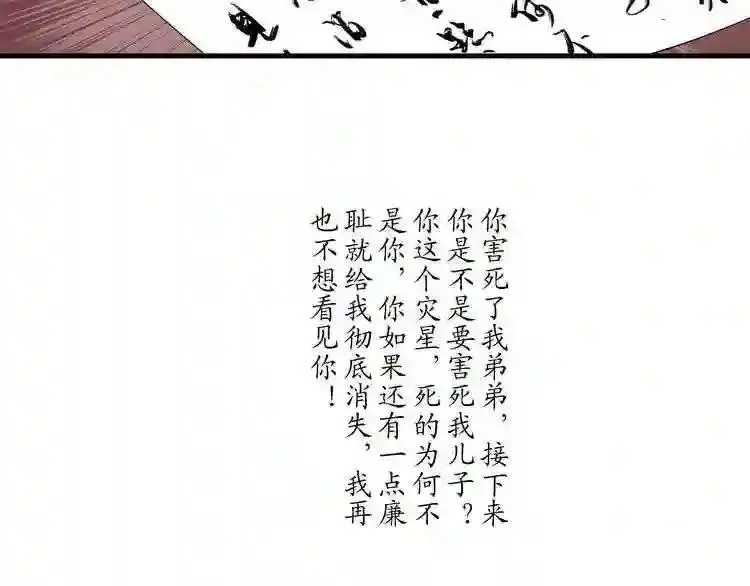 你害死了我弟弟，接下来
你是不是要害死我儿子？
你这个灾星，死的为何不
是你，你如果还有一点廉
耻就给我彻底消失，我再
也不想看见你！